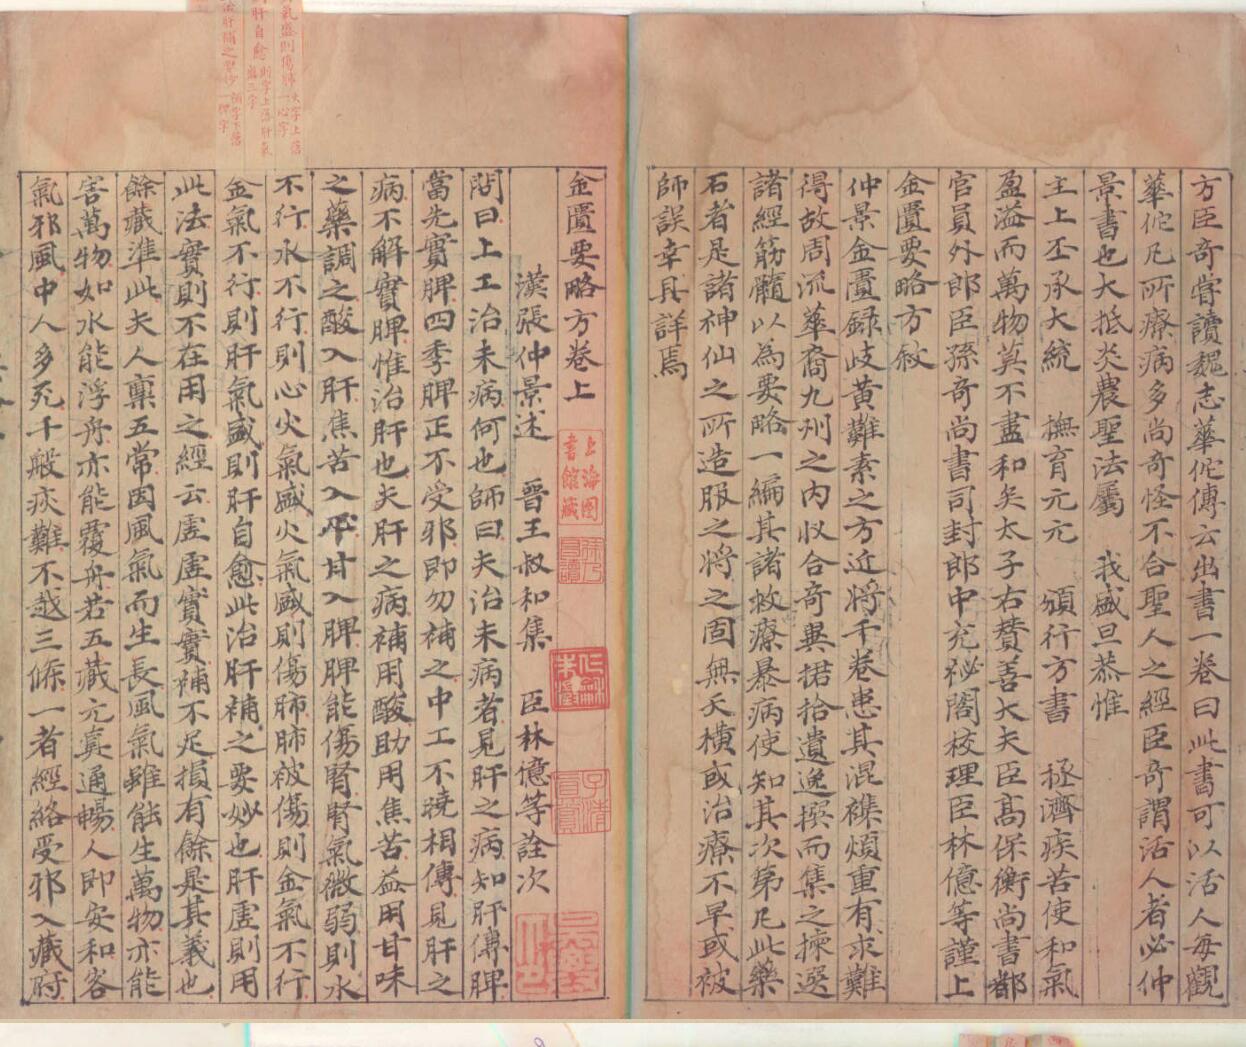 方臣奇嘗讀魏志華佗傳云出書一卷曰此書可以活人每觀
華佗凡所療病多尚奇怪不合聖人之經臣奇謂活人者必仲
景書也大抵炎農聖法屬 我盛旦恭惟
主上丕承大統 撫育元元 頒行方書 拯濟疾苦使和氣
盈溢而萬物莫不盡和矣太子右賛善大夫臣髙保衡尚書都
官員外郎臣孫奇尚書司封郎中充祕閣校理臣林億等謹上
金匱要略方敘
仲景金匱録岐黄難素之方近將千卷患其混襍煩重有求難
得故周流華裔九州之内収合奇異捃拾遺逸撰而集之揀選
諸經筋髓以為要略一編其諸救療暴病使知其次第凡此藥
石者是諸神仙之所造服之將之固無夭横或治療不早或被
師誤幸具詳焉
金匱要略方卷上
漢張仲景述 晉王叔和集 臣林億等詮次
問曰上工治未病何也師曰夫治未病者見肝之病知肝傳脾
當先實脾四季脾正不受邪即勿補之中工不曉相傳見肝之
病不解實脾惟治肝也夫肝之病補用酸助用焦苦益用甘味
之藥調之酸入肝焦苦入心甘入脾脾能傷腎腎氣微弱則水
不行水不行則心火氣盛火氣盛則傷肺肺被傷則金氣不行
金氣不行則肝氣盛則肝自愈此治肝補之要妙也肝虚則用
此法實則不在用之經云虚虚實實補不足損有餘是其義也
餘藏準此夫人稟五常因風氣而生長風氣雖能生萬物亦能
害萬物如水能浮舟亦能覆舟若五藏元真通暢人即安和客
氣邪風中人多死千般疢難不越三條一者經絡受邪入藏府
上海圖
書館藏
氣盛則傷肺 火字上落一心字
肝自愈 則字上落肝氣盛三字
治肝補之要妙 補字下落一脾字